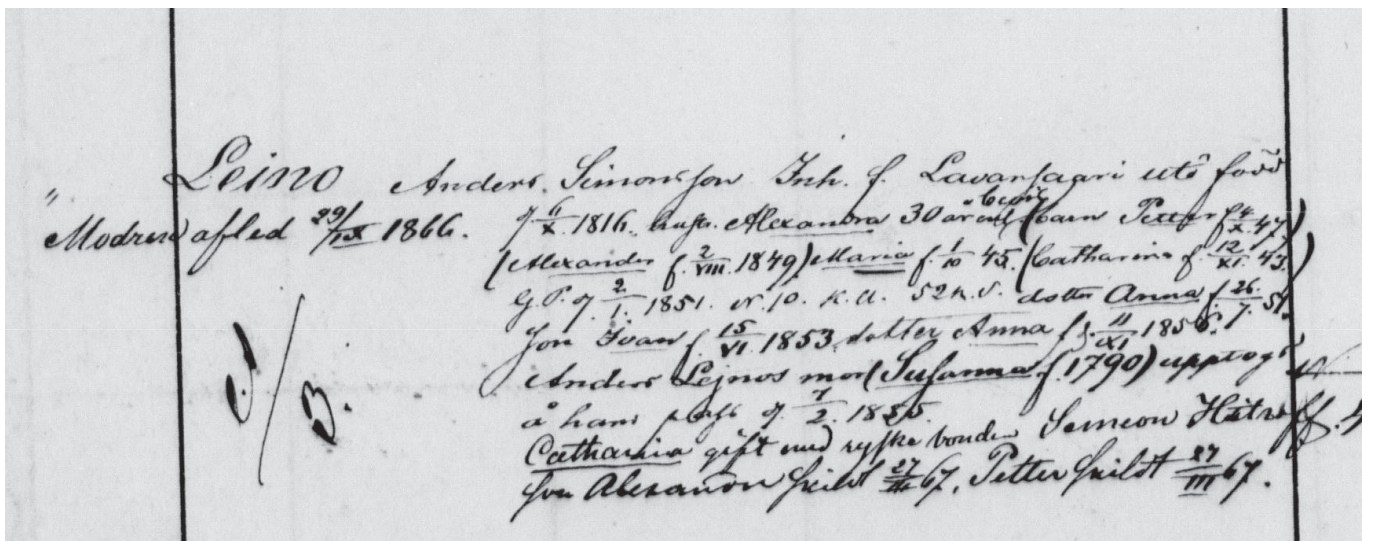 Leino Anders Simonsson Inh. f. Lavansaari utö född
" Modren afled 29/IX 1866.
d. 6/X 1816. hustr. Alexandra 30 år barn Petter f. 4/X 47)
(Alexander f. 2/VIII 1849) Maria f. 1/10 45. (Catharina f. 12/XI 43)
G.P. d. 2/1 1851. nr 10. K.U. 52 n.S. dotter Anna f. 26/7 51.
Son Ivan f. 15/VI 1853 dotter Anna f. d. 11/XI 1856.
Anders Leinos mor (Susanna f. 1790) upptogs
å hans pass d. 7/2 1855.
Catharina gift med ryske bonden Semeon
Son Alexander skildt 27/III 67. Petter skildt 27/III 67.